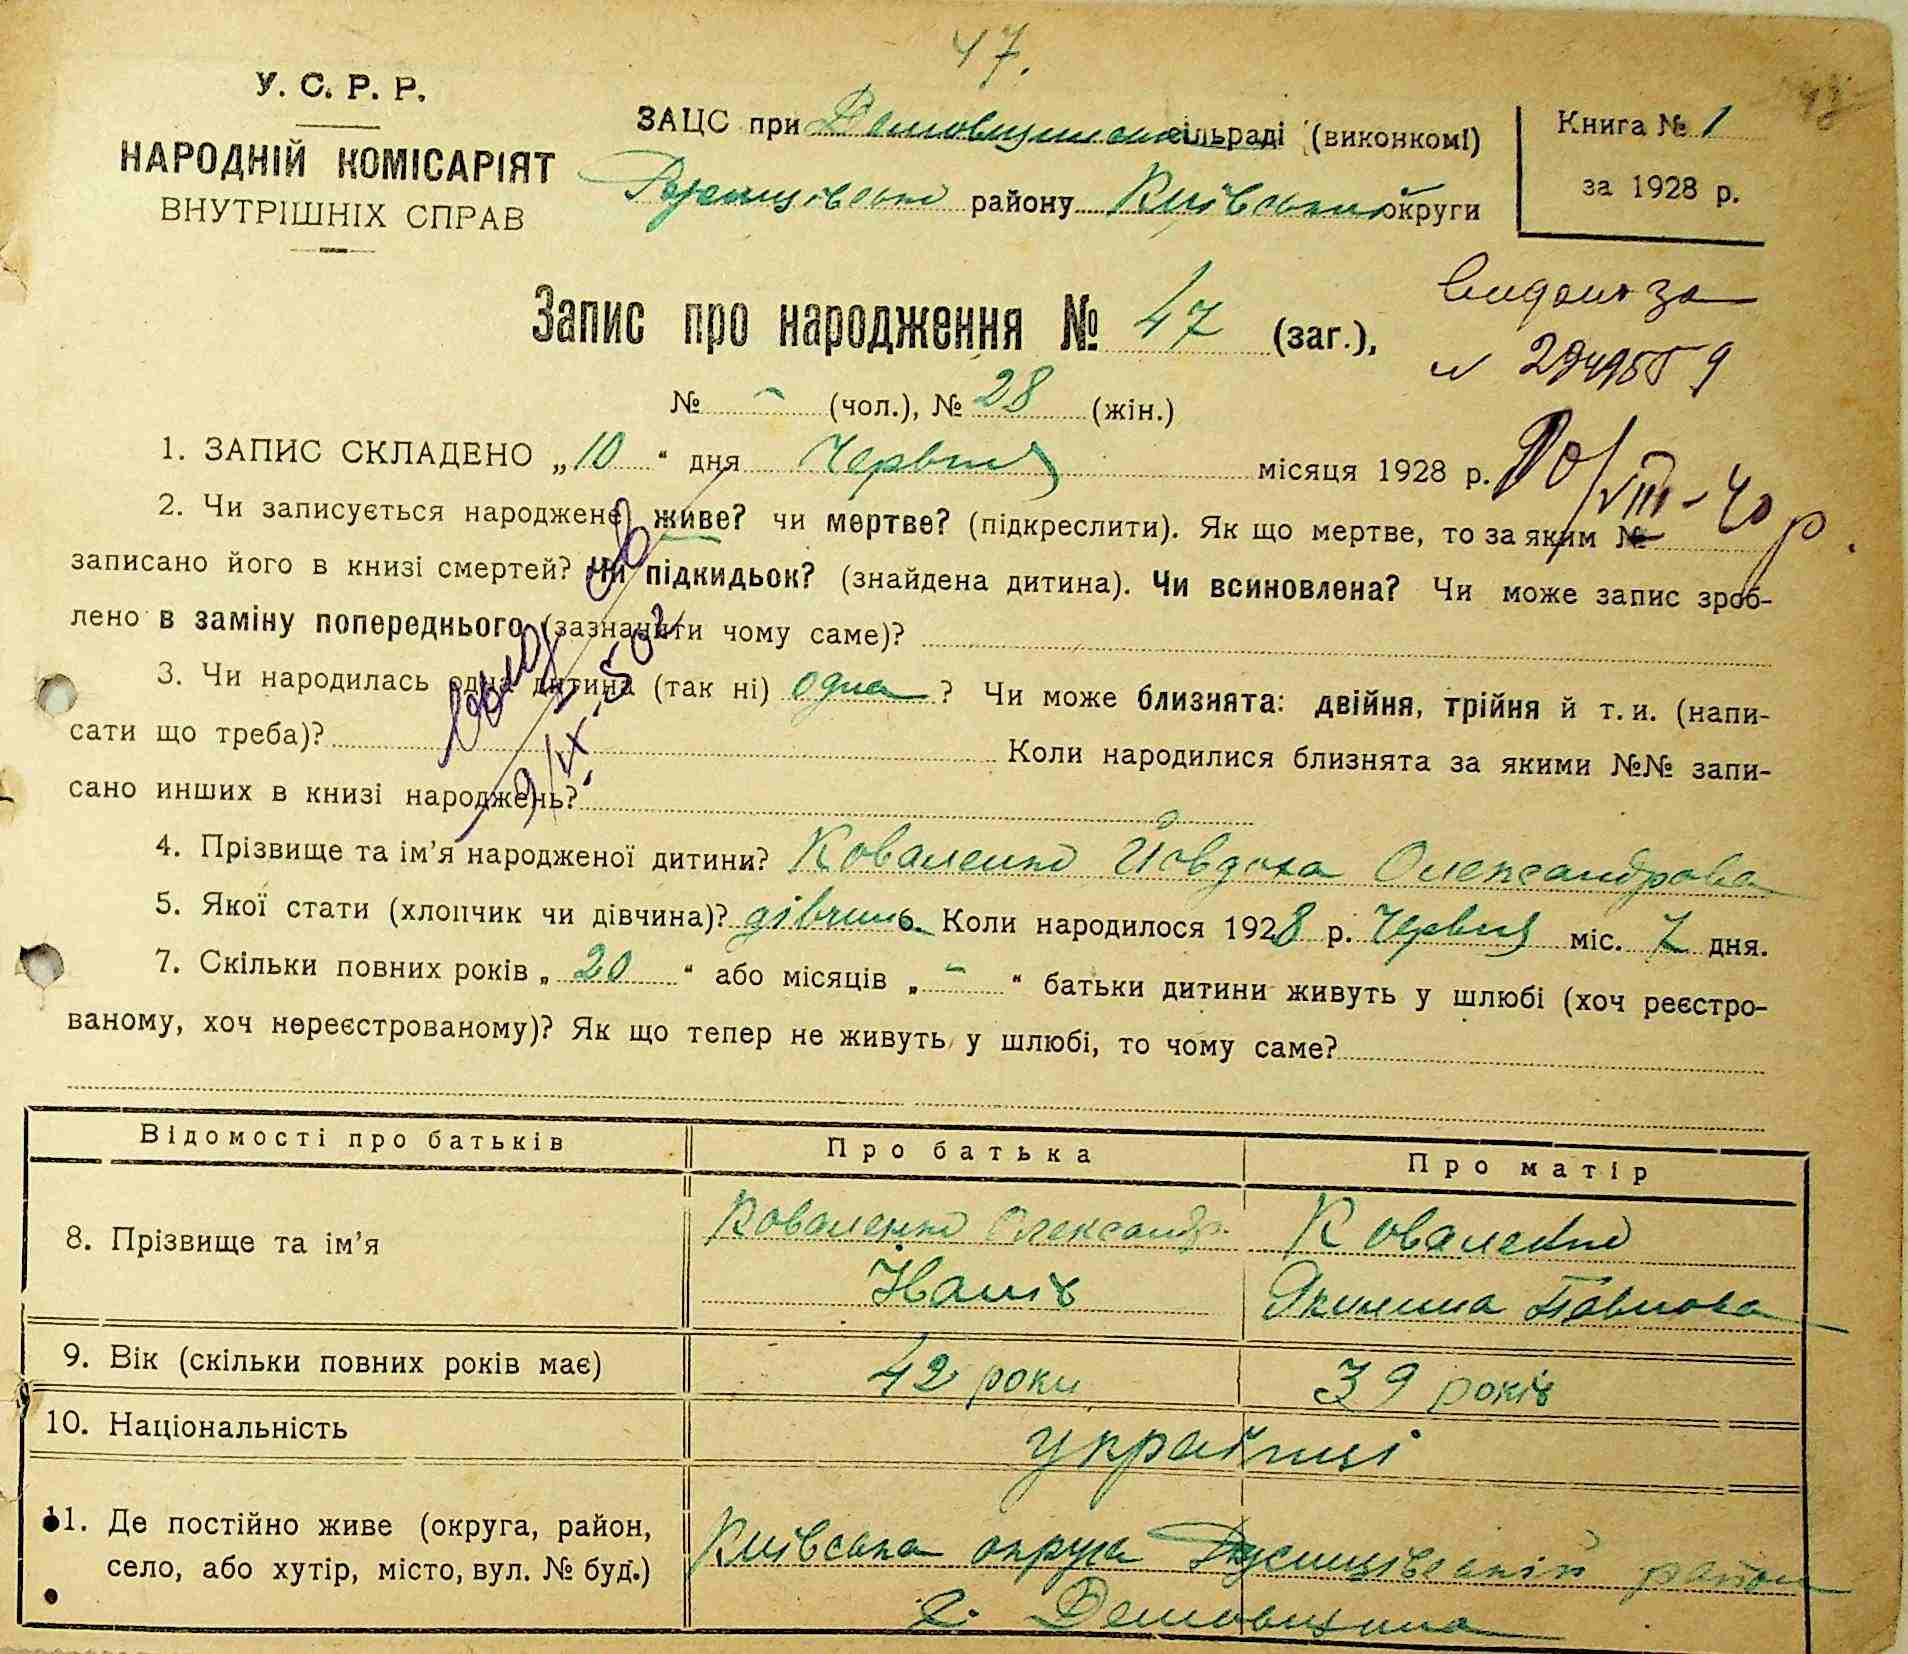 47.
У. С. Р. Р.
НАРОДНІЙ КОМІСАРІЯТ
ВНУТРІШНІХ СПРАВ
ЗАЦС при сільраді (виконкомі)
району Київської округи
Книга № 1
за 1928 р.
Запис про народження № 47 (заг.),
№ - (чол.), № 28 (жін.)
видано за
20/VIII-40 р.
1. ЗАПИС СКЛАДЕНО „10“ дня Червня місяця 1928 р.
2. Чи записується народжене живе? чи мертве? (підкреслити). Як що мертве, то за яким №
записано його в книзі смертей? Чи підкидьок? (знайдена дитина). Чи всиновлена? Чи може запис зроб-
лено в заміну попереднього (зазначити чому саме)?
3. Чи народилась одна дитина (так ні) одна? Чи може близнята: двійня, трійня й т. и. (напи-
сати що треба)? Коли народилися близнята за якими №№ запи-
сано инших в книзі народжень?
4. Прізвище та ім’я народженої дитини? Коваленко Йовдоха Олександрова
5. Якої стати (хлопчик чи дівчина)? дівчина. Коли народилося 1928 р. Червня міс. 7 дня.
7. Скільки повних років „20“ або місяців „-“ батьки дитини живуть у шлюбі (хоч реєстро-
ваному, хоч нереєстрованому)? Як що тепер не живуть у шлюбі, то чому саме?
Відомості про батьків Про батька Про матір
8. Прізвище та ім’я Коваленко Олександр Коваленко
Іванів Павлова
9. Вік (скільки повних років має) 42 роки 39 років
10. Національність українці
11. Де постійно живе (округа, район,
село, або хутір, місто, вул. № буд.)
Київська округа район
с.